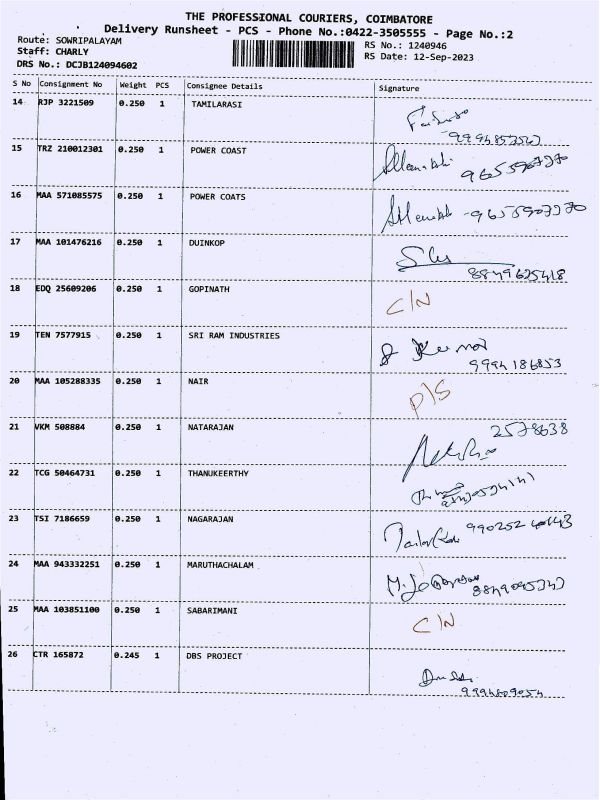 THE PROFESSIONAL COURIERS, COIMBATORE
Delivery Runsheet - PCS - Phone No.:0422-3505555 - Page No.:2
Route: SOWRIPALAYAM
Staff: CHARLY
DRS No.: DCJB124094602
RS No.: 1240946
RS Date: 12-Sep-2023
S No Consignment No Weight PCS Consignee Details Signature
14 RJP 3221509 0.250 1 TAMILARASI
15 TRZ 210012301 0.250 1 POWER COAST
9655907770
16 MAA 571085575 0.250 1 POWER COATS
-9655907770
17 MAA 101476216 0.250 1 DUINKOP
8849625418
18 EDQ 25609206 0.250 1 GOPINATH
C/N
19 TEN 7577915 0.250 1 SRI RAM INDUSTRIES
9994186853
20 MAA 105288335 0.250 1 NAIR
P/S
21 VKM 508884 0.250 1 NATARAJAN
2578638
22 TCG 50464731 0.250 1 THANUKEERTHY
23 TSI 7186659 0.250 1 NAGARAJAN
24 MAA 943332251 0.250 1 MARUTHACHALAM
25 MAA 103851100 0.250 1 SABARIMANI
C/N
26 CTR 165872 0.245 1 DBS PROJECT
9994809054